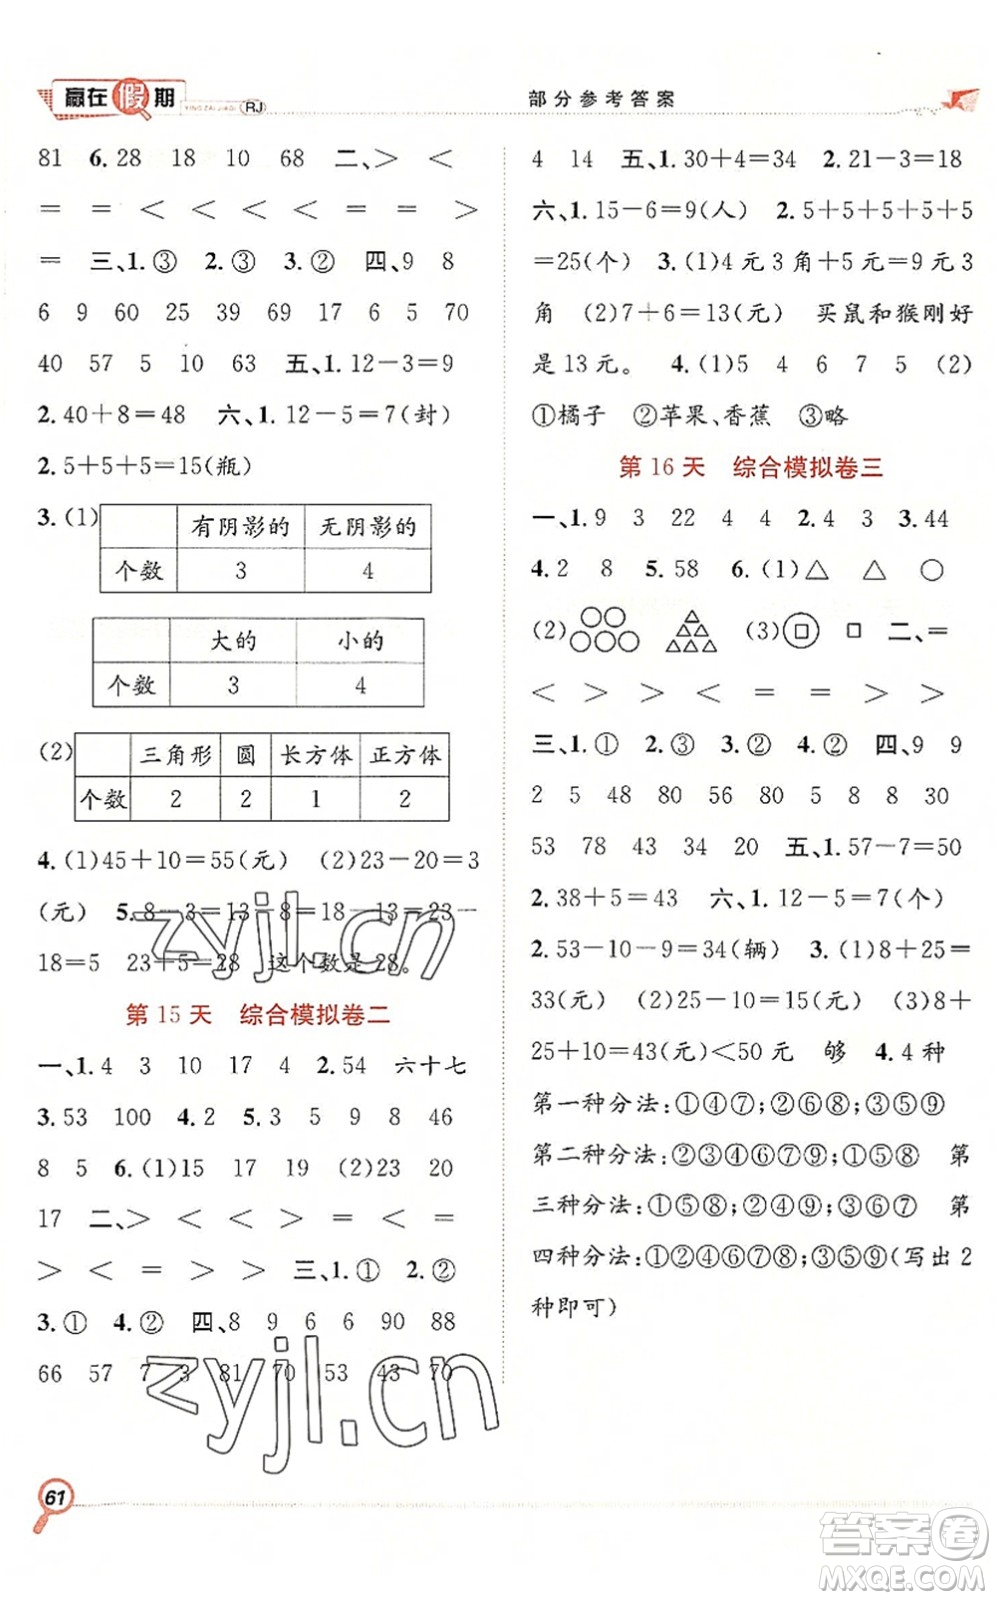 赢在假期
YING ZAI JIAQI
RJ
部分参考答案
81 6.28 18 10 68 二、＞ ＜
＝ ＝ ＜ ＜ ＜ ＜ ＝ ＝ ＞
＝ 三、1.③ 2.③ 3.② 四、9 8
6 9 60 25 29 17 6 5 70
40 57 5 10 63 五、1.12－3＝9
2.40＋8＝48 六、1.12－5＝7(封)
2.5＋5＋5＝15(瓶)
3.(1)
有阴影的 无阴影的
个数 3 4
大的 小的
个数 3 4
(2)
三角形 圆 长方体 正方体
个数 2 2 1 2
4.(1)45＋10＝55(元) (2)23－20＝3
(元) 5.8－3＝13－8＝18－13＝23－
18＝5 23＋5＝28 这个数是28。
第15天 综合模拟卷二
一、1.4 3 10 17 4 2.54 六十七
3.53 100 4.2 5.3 5 9 8 46
8 5 6.(1)15 17 19 (2)23 20
17 二、＞ ＜ ＜ ＞ ＝ ＜ ＝
＞ ＜ ＝ ＞ ＞ 三、1.① 2.②
3.① 4.② 四、8 9 6 6 90 88
66 57 7 3 81 70 53 43 70
4 14 五、1.30＋4＝34 2.21－3＝18
六、1.15－6＝9(人) 2.5＋5＋5＋5＋5
＝25(个) 3.(1)4元3角＋5元＝9元3
角 (2)7＋6＝13(元) 买鼠和猴刚好
是13元。 4.(1)5 4 6 7 5 (2)
①橘子 ②苹果、香蕉 ③略
第16天 综合模拟卷三
一、1.9 3 22 4 4 2.4 3 3.44
4.2 8 5.58 6.(1)△ △ ○
(2)○○○○○ △△△△△△ (3)□ □ 二、＝
＜ ＞ ＞ ＜ ＝ ＝ ＞ ＞
三、1.① 2.③ 3.② 4.② 四、9 9
2 5 48 80 56 80 5 8 8 30
53 78 43 20 33 20 五、1.57－7＝50
2.38＋5＝43 六、1.12－5＝7(个)
2.53－10－9＝34(辆) 3.(1)8＋25＝
33(元) (2)25－10＝15(元) (3)8＋
25＋10＝43(元)＜50元 够 4.4种
第一种分法:①④⑦;②⑥⑧;③⑤⑨
第二种分法:②③④⑥⑦⑨;①⑤⑧ 第
三种分法:①⑤⑧;②④⑨;③⑥⑦ 第
四种分法:①②④⑥⑦⑧;③⑤⑨(写出2
种即可)
zyjl.cn
zyjl.cn
61
答案卷
MXQE.COM